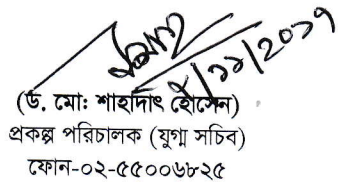 ৫/১১/২০১৭
(ড. মো: শাহাদাৎ হোসেন)
প্রকল্প পরিচালক (যুগ্ম সচিব)
ফোন-০২-৫৫০০৬৮২৫